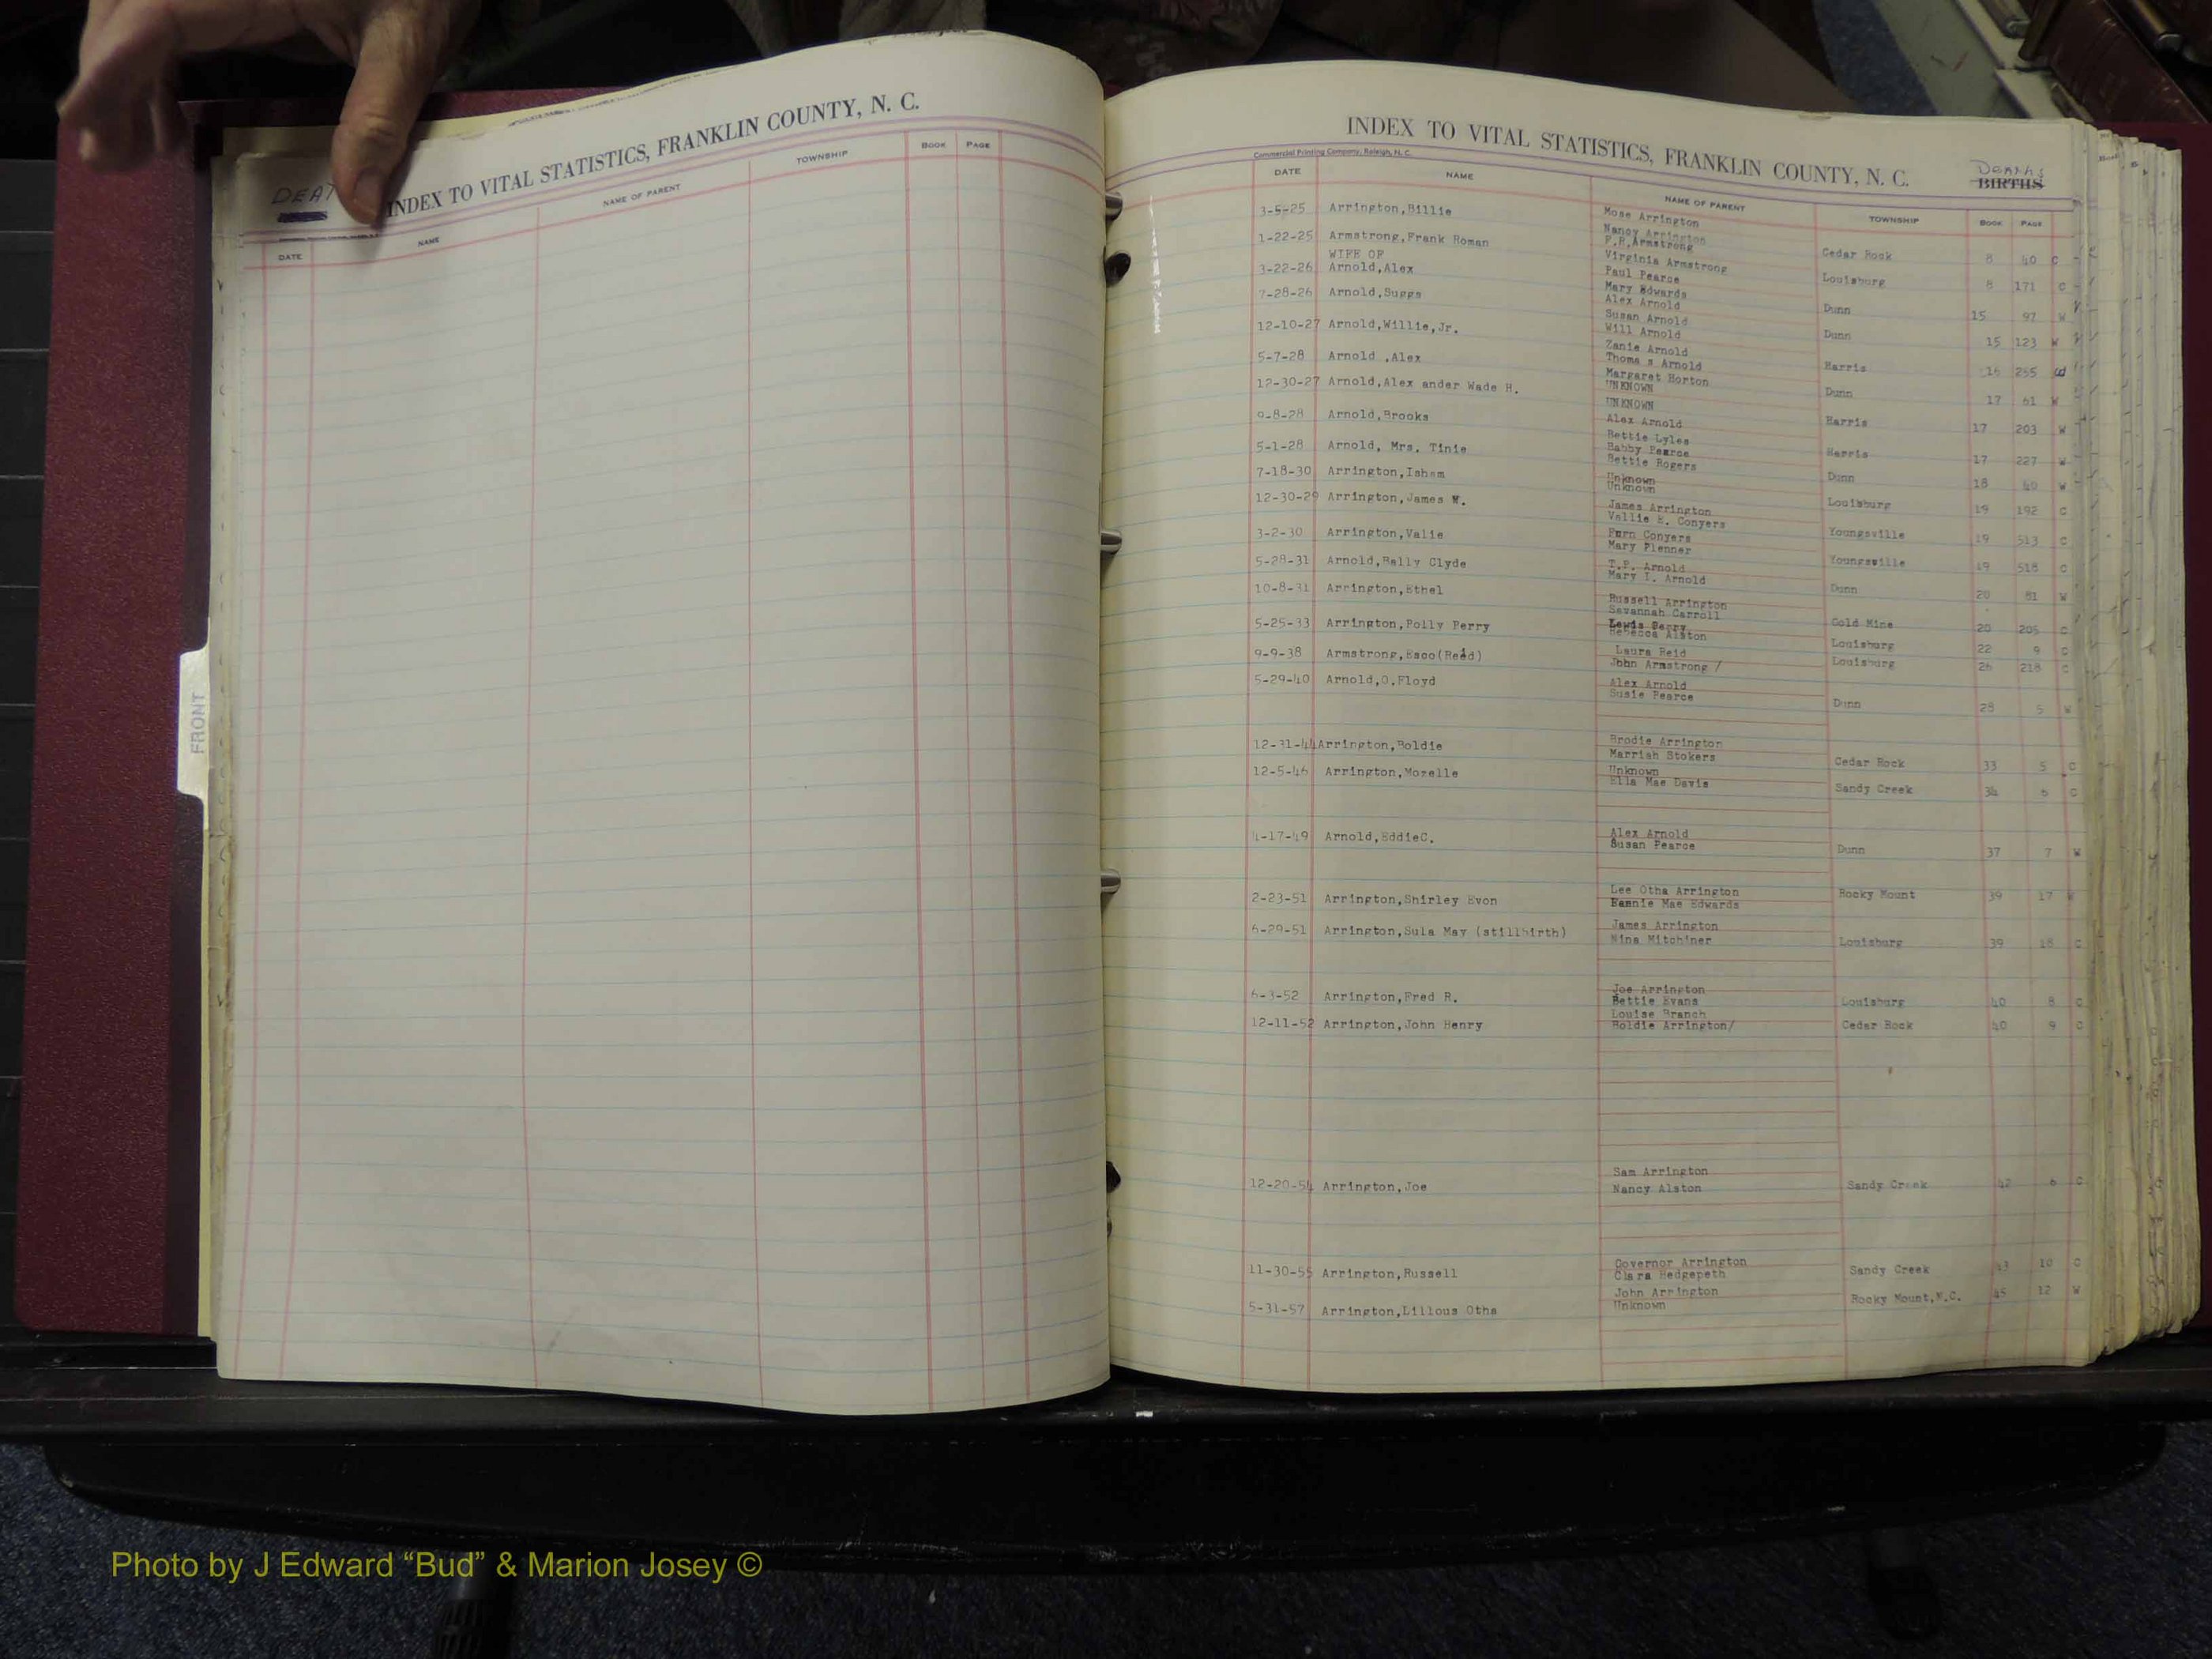 INDEX TO VITAL STATISTICS, FRANKLIN COUNTY, N. C.
DATE NAME NAME OF PARENT TOWNSHIP BOOK PAGE
FRONT
INDEX TO VITAL STATISTICS, FRANKLIN COUNTY, N. C.
DEATHS
BIRTHS
Commercial Printing Company, Raleigh, N. C.
DATE NAME NAME OF PARENT TOWNSHIP BOOK PAGE
3-5-25 Arrington,Billie Mose Arrington
Nancy Arrington Cedar Rock 8 40 C
1-22-25 Armstrong,Frank Roman F.R.Armstrong
Virginia Armstrong Louisburg 8 171 C
WIFE OF
3-22-26 Arnold,Alex Paul Pearce
Mary Edwards Dunn 15 97 W
7-28-26 Arnold,Suggs Alex Arnold
Susan Arnold Dunn 15 123 W
12-10-27 Arnold,Willie,Jr. Will Arnold
Zanie Arnold Harris 16 255
5-7-28 Arnold ,Alex Thoma s Arnold
Margaret Horton Dunn 17 61 W
12-30-27 Arnold,Alex ander Wade H. UNKNOWN
UNKNOWN Harris 17 203 W
9-8-28 Arnold,Brooks Alex Arnold
Bettie Lyles Harris 17 227 W
5-1-28 Arnold, Mrs. Tinie Babby Pearce
Bettie Rogers Dunn 18 40 W
7-18-30 Arrington,Isham Unknown
Unknown Louisburg 19 192 C
12-30-29 Arrington,James W. James Arrington
Vallie E. Conyers Youngsville 19 513 C
3-2-30 Arrington,Valie Furn Conyers
Mary Plenner Youngsville 19 518 C
5-28-31 Arnold,Bally Clyde T.P. Arnold
Mary I. Arnold Dunn 20 81 W
10-8-31 Arrington,Ethel Russell Arrington
Savannah Carroll Gold Mine 20 205 C
5-25-33 Arrington,Polly Perry Lewis Perry
Rebecca Alston Louisburg 22 9 C
9-9-38 Armstrong,Esco(Reid) Laura Reid
John Armstrong / Louisburg 26 218 C
5-29-40 Arnold,O.Floyd Alex Arnold
Susie Pearce Dunn 28 5 W
12-31-44 Arrington,Boldie Brodie Arrington
Marriah Stokers Cedar Rock 33 5 C
12-5-46 Arrington,Mozelle Unknown
Ella Mae Davis Sandy Creek 34 6 C
4-17-49 Arnold,EddieC. Alex Arnold
Susan Pearce Dunn 37 7 W
2-23-51 Arrington,Shirley Evon Lee Otha Arrington
Fannie Mae Edwards Rocky Mount 39 17 W
6-29-51 Arrington,Sula May (stillbirth) James Arrington
Nina Mitchiner Louisburg 39 18 C
6-3-52 Arrington,Fred R. Joe Arrington
Bettie Evans Louisburg 40 8 C
12-11-52 Arrington,John Henry Louise Branch
Boldie Arrington/ Cedar Rock 40 9 C
12-20-54 Arrington,Joe Sam Arrington
Nancy Alston Sandy Creek 42 6 C
11-30-55 Arrington,Russell Governor Arrington
Clara Hedgepeth Sandy Creek 43 10 C
5-31-57 Arrington,Lillous Otha John Arrington
Unknown Rocky Mount,N.C. 45 12 W
Photo by J Edward “Bud” & Marion Josey ©